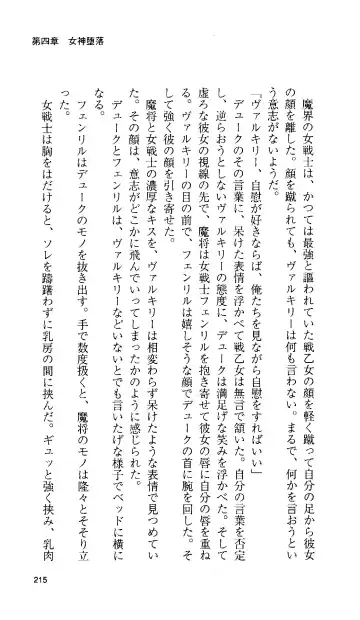 第四章　女神堕落
魔界の女戦士は、かつては最強と謳われていた戦乙女の顔を軽く蹴って自分の足から彼女
の顔を離した。顔を蹴られても、ヴァルキリーは何も言わない。まるで、何かを言おうとい
う意志がないようだ。
「ヴァルキリー、自慰が好きならば、俺たちを見ながら自慰をすればいい」
デュークのその言葉に、呆けた表情を浮かべて戦乙女は無言で頷いた。自分の言葉を否定
し、逆らおうとしないヴァルキリーの態度に、デュークは満足げな笑みを浮かべた。そして
虚ろな彼女の視線の先で、魔将は女戦士フェンリルを抱き寄せて彼女の唇に自分の唇を重ね
る。ヴァルキリーの目の前で、フェンリルは嬉しそうな顔でデュークの首に腕を回した。そ
して強く彼の顔を引き寄せた。
魔将と女戦士の濃厚なキスを、ヴァルキリーは相変わらず呆けたような表情で見つめてい
た。その顔は、意志がどこかに飛んでいってしまったかのように感じられた。
デュークとフェンリルは、ヴァルキリーなどいないとでも言いたげな様子でベッドに横に
なる。
フェンリルはデュークのモノを抜き出す。手で数度扱くと、魔将のモノは隆々とそそり立
った。
女戦士は胸をはだけると、ソレを躊躇わずに乳房の間に挟んだ。ギュッと強く挟み、乳肉
215